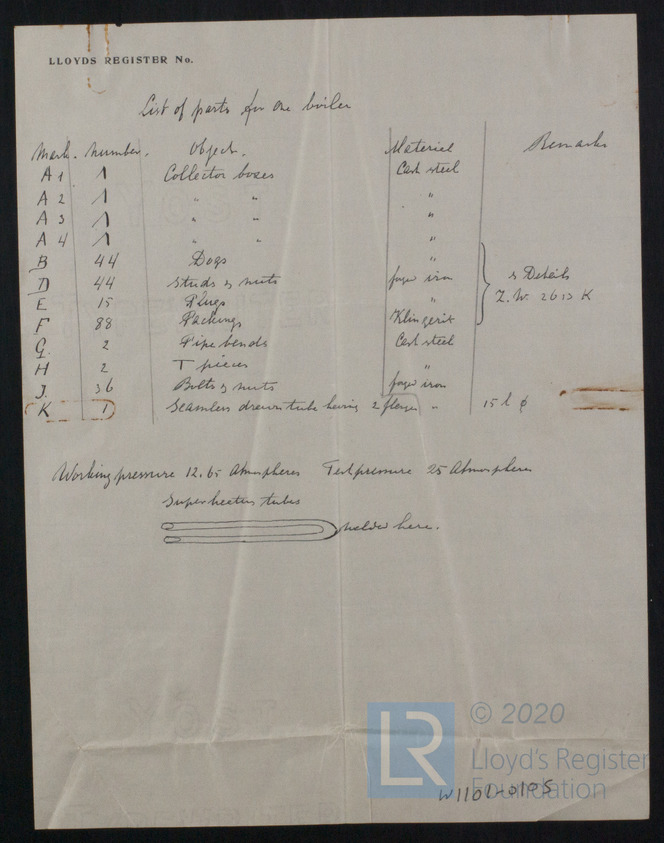 LLOYDS REGISTER No.
List of parts for one boiler
Mark. Number. Object. Materiel Remarks
A 1 1 Collector boxes Cast steel
A 2 1 " " "
A 3 1 " " "
A 4 1 " " "
B 44 Dogs "
D 44 Studs & nuts forge iron s Details
E 15 Plugs " Z.W. 2613 K
F 88 Packings Klingerit
G. 2 Pipe bends Cast steel
H 2 T pieces "
J. 36 Bolts & nuts forge iron
K 1 Seamless drawn tube having 2 flenges " 15 l ϕ
Working pressure 12.65 Atmospheres Test pressure 25 Atmospheres
Superheater tubes
welded here.
LR
© 2020
Lloyd's Register
Foundation
W1101-0105